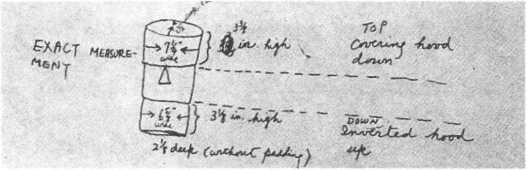 EXACT MEASURE-
MENT
wide
in. high
TOP
Covering hood
down
wide
3½ in. high
DOWN
Inverted hood
up
2⅛ deep (without padding)